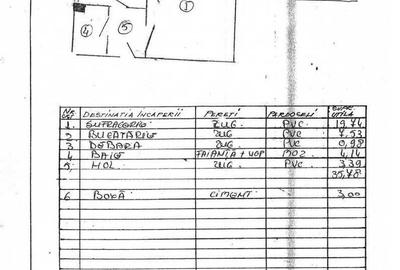 1
4
5
NR CRT DESTINATIA ÎNCAPERII PERETI PARDOSELI SUPR. UTILA
1. SUFRAGERIE ZUG. PVC 19,74
2 BUCATARIE ZUG PVC 7,53
3 DEBARA ZUG. PVC 0,98
4 BAIE FAIANTĂ + VOP MOZ 4,14
5, HOL ZUG. PVC 3,39
35,78
6 BOXĂ CIMENT 3,00